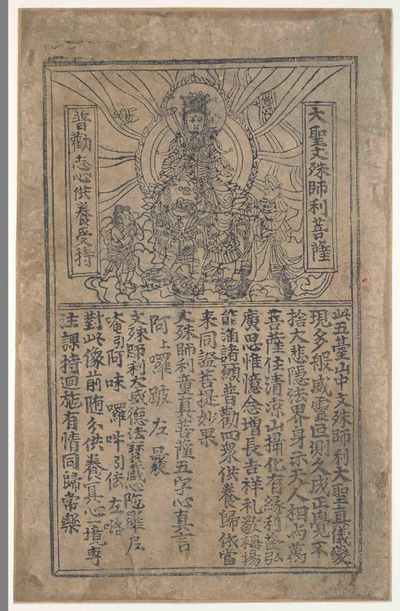 大聖文殊師利菩薩
普勸志心供養受持
此五臺山中文殊師利大聖真儀變
現多般威靈叵測久成正覺不
捨大悲隱法界身示天人相與萬
菩薩住清涼山攝化有緣利益弘
廣思惟憶念增長吉祥礼敬稱揚
能滿諸願普勸四衆供養歸依當
来同證菩提妙果
文殊師利童真菩薩五字心真言
阿上囉跛左曩
文殊師利大威德法寶藏心陁羅尼
唵引阿味囉吽引佉左咯
對此像前随分供養冥心一境專
注課持迴施有情同歸常樂